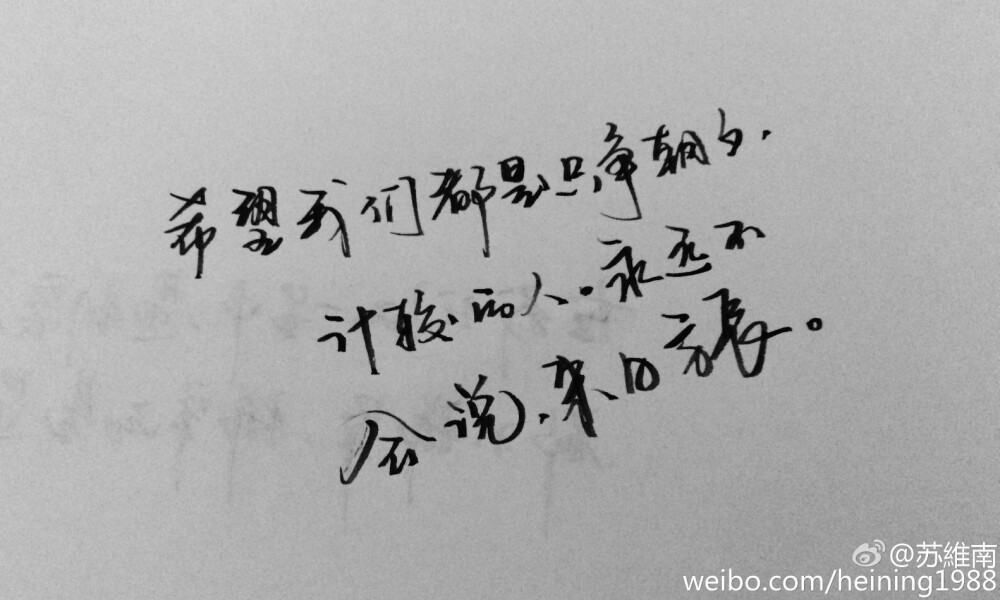 希望我们都是只争朝夕.
计较的人。永远不
会说,来日方長。
@苏維南
weibo.com/heining1988